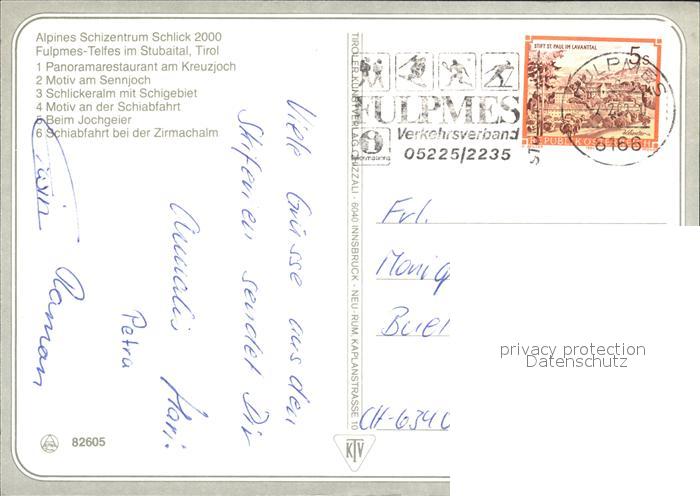 Alpines Schizentrum Schlick 2000
Fulpmes-Telfes im Stubaital, Tirol
1 Panoramarestaurant am Kreuzjoch
2 Motiv am Sennjoch
3 Schlickeralm mit Schigebiet
4 Motiv an der Schiabfahrt
5 Beim Jochgeier
6 Schiabfahrt bei der Zirmachalm
Viele Grüsse aus den
Skiferien sendet Dir
Petra
82605
TIROLER KUNSTVERLAG CHIZZALI · 6040 INNSBRUCK - NEU-RUM KAPLANSTRASSE 10
KTV
FULPMES
Verkehrsverband
05225/2235
STIFT ST. PAUL IM LAVANTTAL
5s
REPUBLIK ÖS
FULPMES
6166
Frl.
Moniq
Buel
CH-6340
privacy protection
Datenschutz